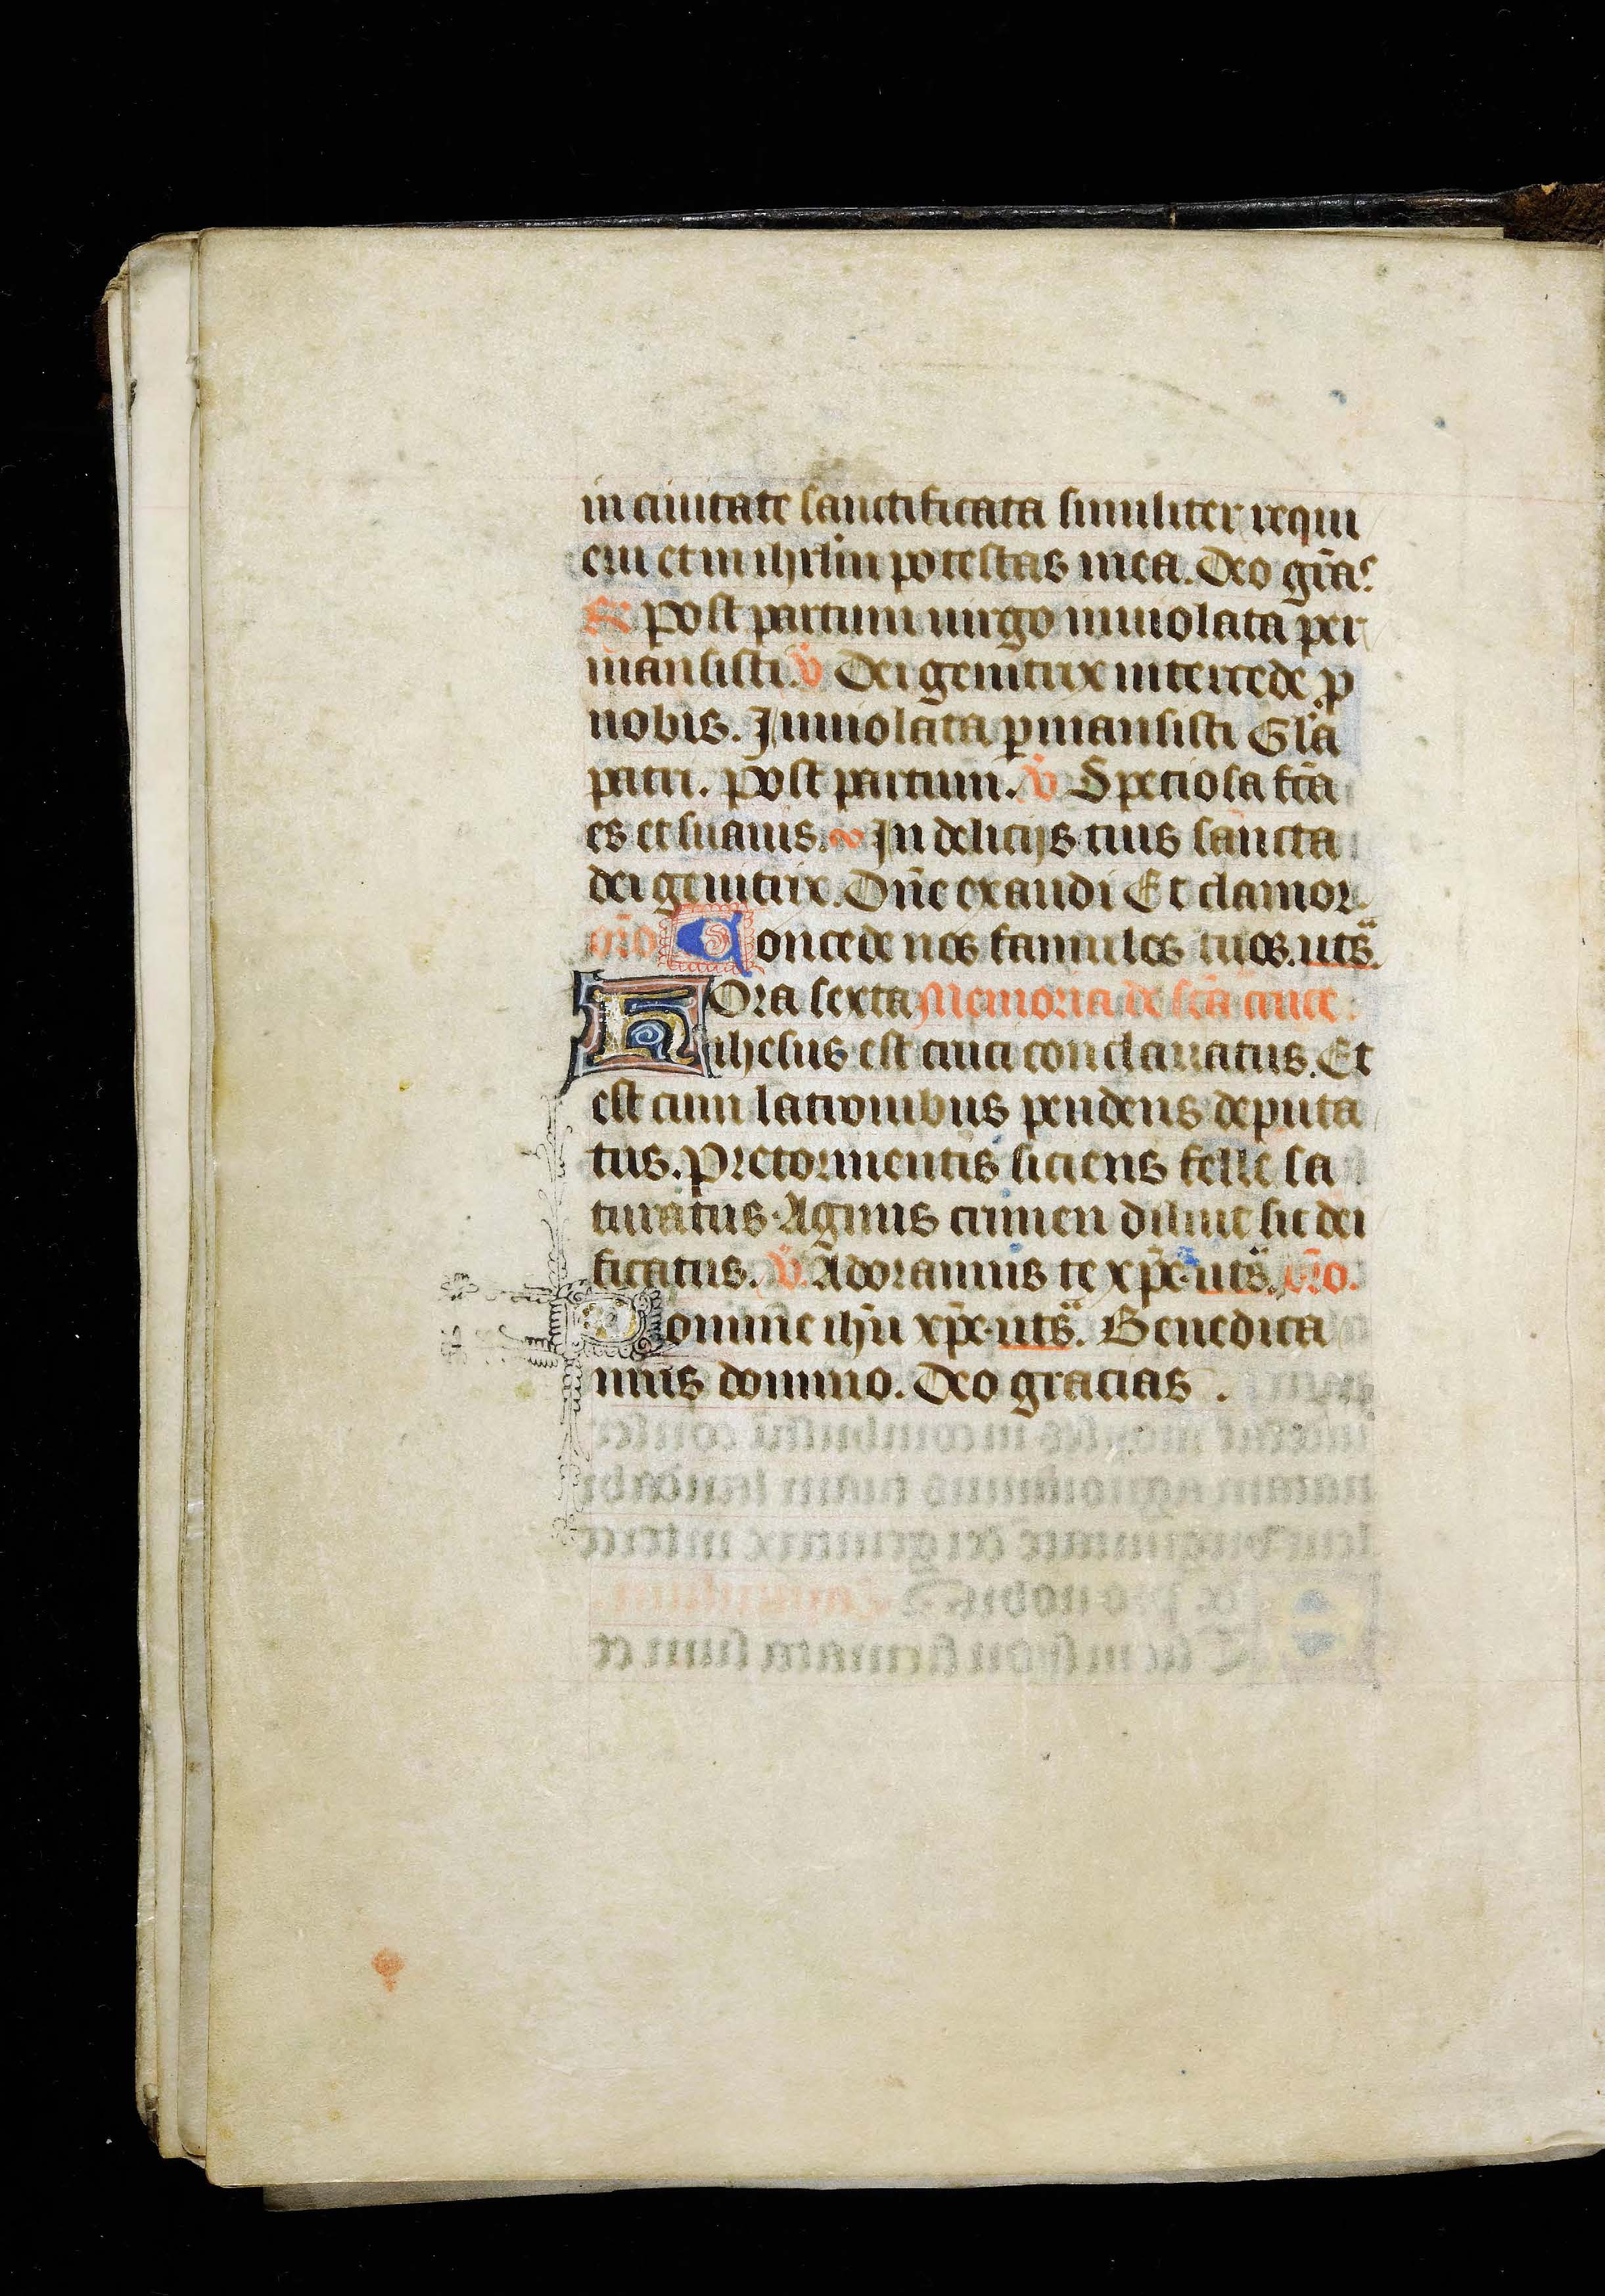 in ciuitate sanctificata similiter requi
eui et in ihrl̄m potestas mea. Deo gr̄as
℟ Post partum uirgo inuiolata per
mansisti. ℣ Dei genitrix intercede ꝓ
nobis. Inuiolata ꝑmansisti Gl̄a
patri. Post partum. ℣ Speciosa fc̄a
es et suauis. In delicijs tuis sancta
dei genitrix. Dn̄e exaudi Et clamor
or̄o Concede nos famulos tuos. ut s̄.
Hora sexta Memoria de sc̄a cruce
ihesus est cruci conclauatus. Et
est cum latronibus pendens deputa
tus. Pre tormentis siciens felle sa
turatus. Agnus crimen diluit sic dei
ficatus. ℣. Adoramus te xp̄e. ut s̄. or̄o.
Domine ih̄u xp̄e. ut s̄. Benedica
mus domino. Deo gracias.